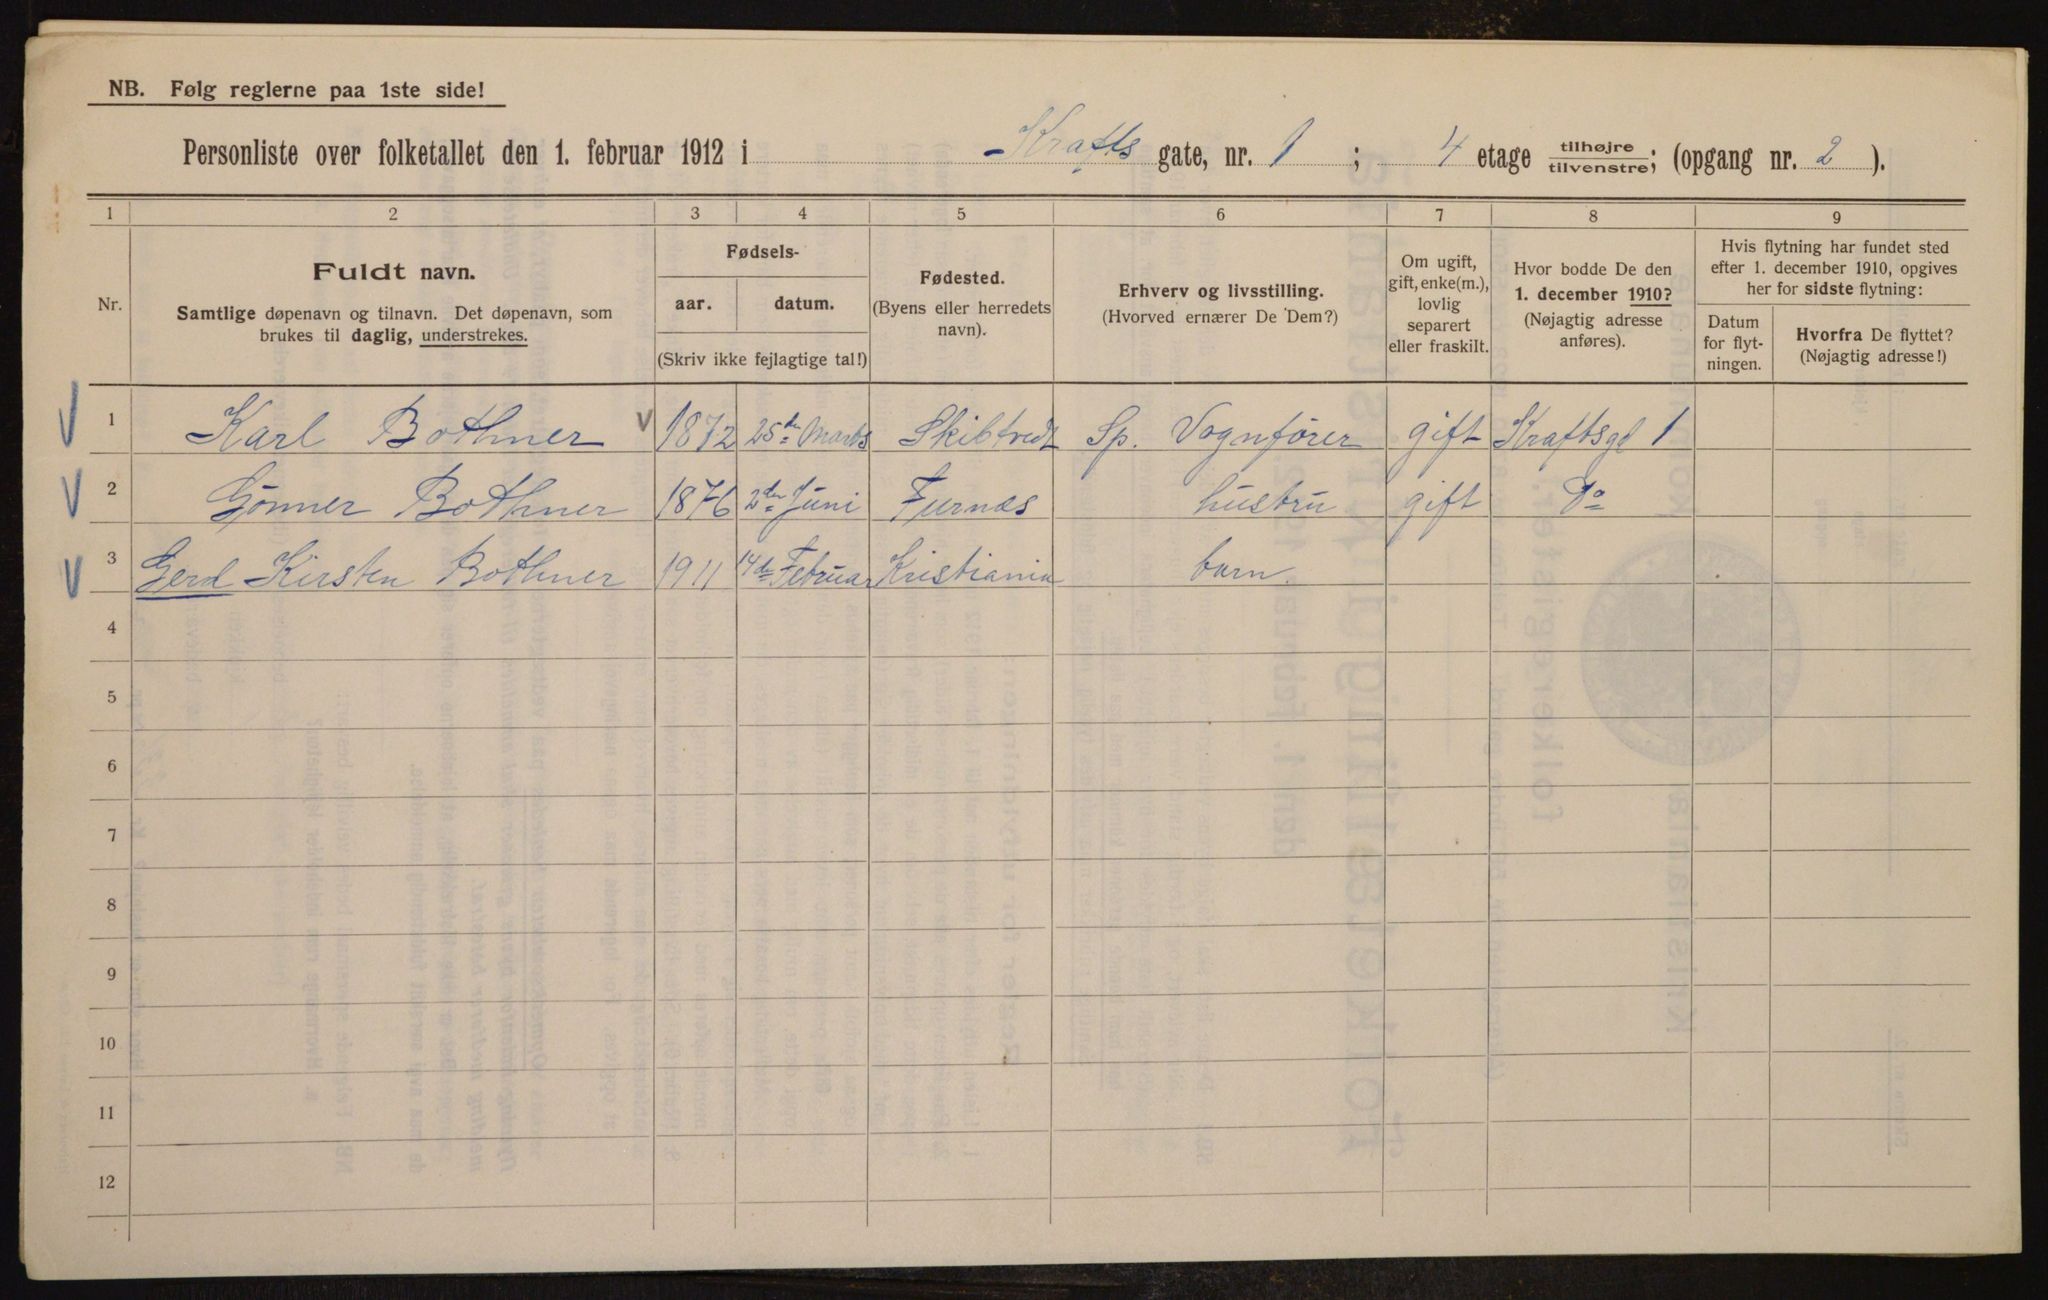 NB. Følg reglerne paa 1ste side!
Personliste over folketallet den 1. februar 1912 i Krafts gate, nr. 1 ; 4 etage tilhøjre/tilvenstre; (opgang nr. 2 ).
1 2 3 4 5 6 7 8 9
Nr.
Fuldt navn.
Samtlige døpenavn og tilnavn. Det døpenavn, som
brukes til daglig, understrekes.
Fødsels-
aar. datum.
(Skriv ikke fejlagtige tal!)
Fødested.
(Byens eller herredets
navn).
Erhverv og livsstilling.
(Hvorved ernærer De Dem?)
Om ugift,
gift, enke(m.),
lovlig
separert
eller fraskilt.
Hvor bodde De den
1. december 1910?
(Nøjagtig adresse
anføres).
Hvis flytning har fundet sted
efter 1. december 1910, opgives
her for sidste flytning:
Datum
for flyt-
ningen.
Hvorfra De flyttet?
(Nøjagtig adresse!)
1 Karl Bothner 1872 25de Marts Skibtvedt Sp. Vognfører gift Kraftsgt 1
2 Gönner Bothner 1876 2den Juni Furnæs hustru gift Do
3 Gerd Kirsten Bothner 1911 14de Februar Kristiania barn.
4
5
6
7
8
9
10
11
12